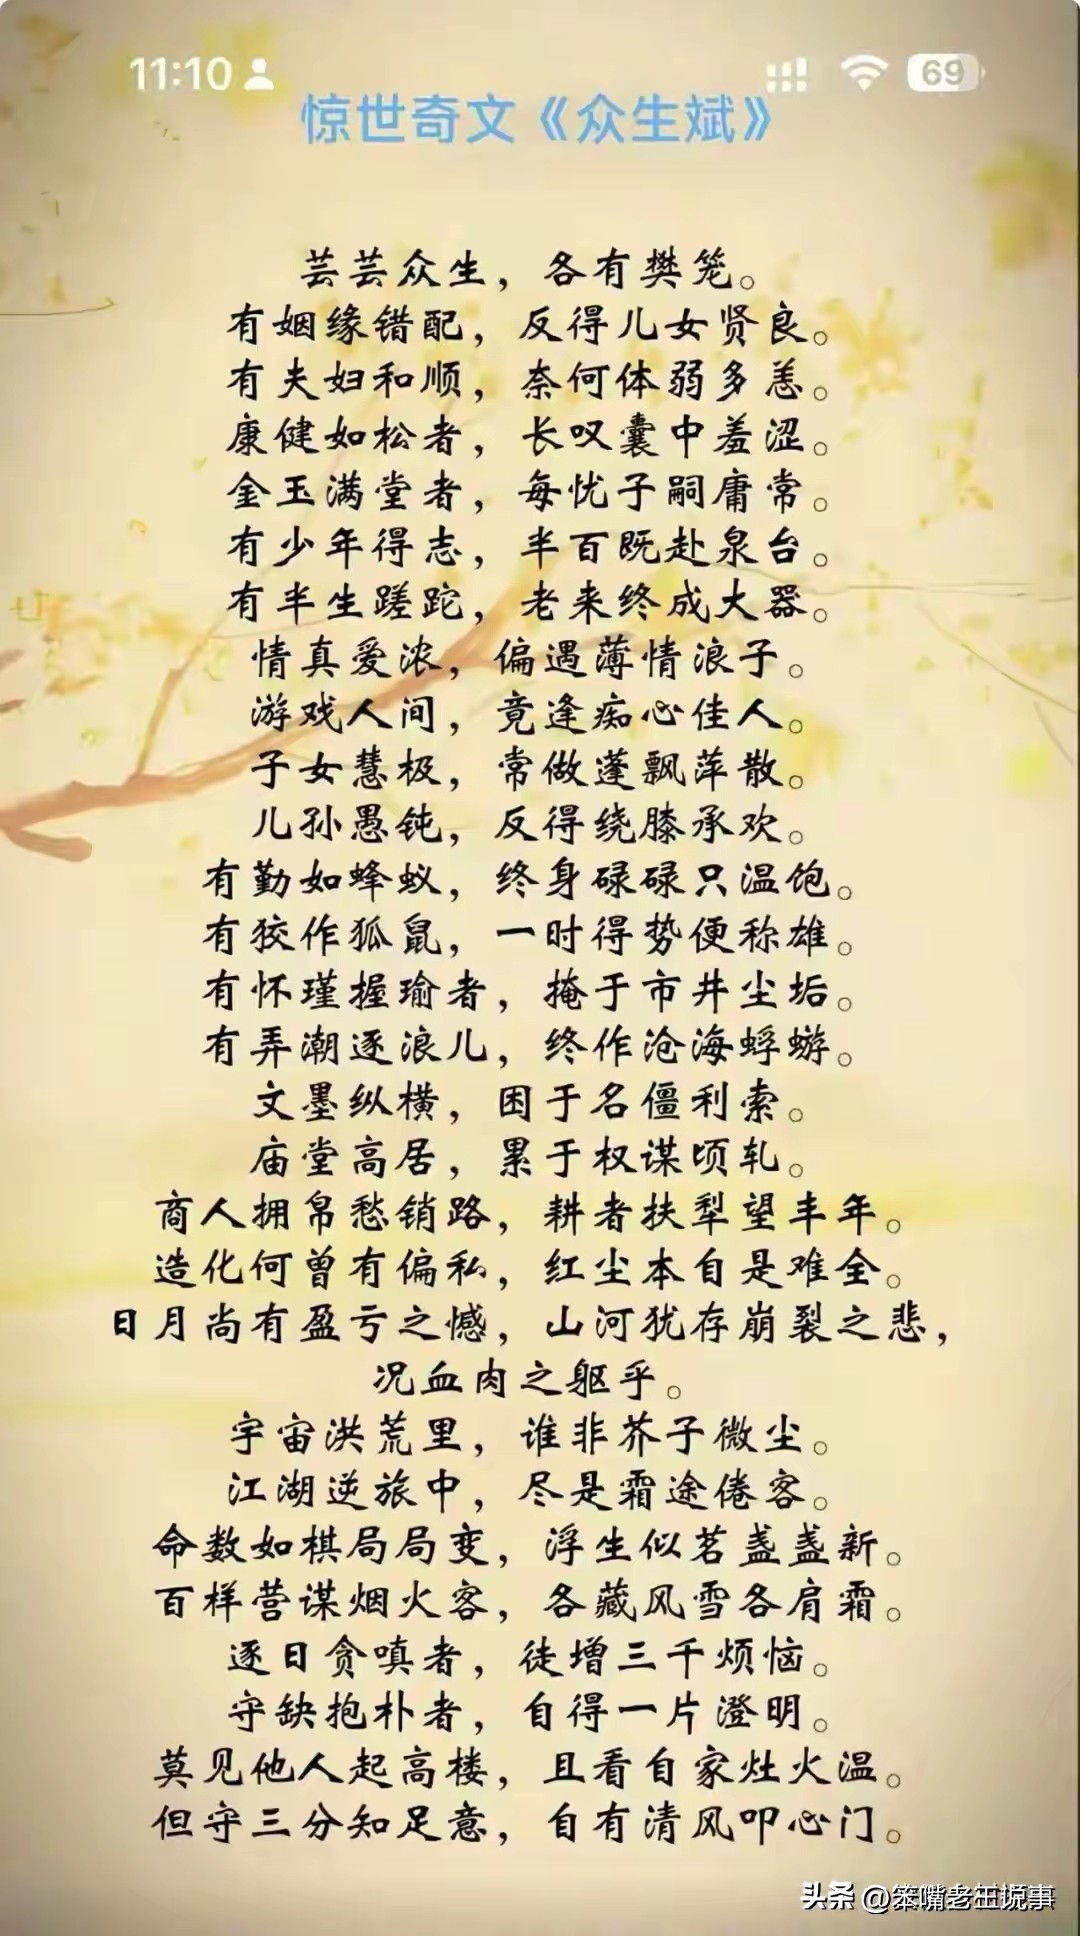 11:10
69
惊世奇文《众生斌》
芸芸众生，各有樊笼。
有姻缘错配，反得儿女贤良。
有夫妇和顺，奈何体弱多恙。
康健如松者，长叹囊中羞涩。
金玉满堂者，每忧子嗣庸常。
有少年得志，半百既赴泉台。
有半生蹉跎，老来终成大器。
情真爱浓，偏遇薄情浪子。
游戏人间，竟逢痴心佳人。
子女慧极，常做蓬飘萍散。
儿孙愚钝，反得绕膝承欢。
有勤如蜂蚁，终身碌碌只温饱。
有狡作狐鼠，一时得势便称雄。
有怀瑾握瑜者，掩于市井尘垢。
有弄潮逐浪儿，终作沧海蜉蝣。
文墨纵横，困于名僵利索。
庙堂高居，累于权谋顷轧。
商人拥帛愁销路，耕者扶犁望丰年。
造化何曾有偏私，红尘本自是难全。
日月尚有盈亏之憾，山河犹存崩裂之悲，
况血肉之躯乎。
宇宙洪荒里，谁非芥子微尘。
江湖逆旅中，尽是霜途倦客。
命数如棋局局变，浮生似茗盏盏新。
百样营谋烟火客，各藏风雪各肩霜。
逐日贪嗔者，徒增三千烦恼。
守缺抱朴者，自得一片澄明。
莫见他人起高楼，且看自家灶火温。
但守三分知足意，自有清风叩心门。
头条 @笨嘴老王说事